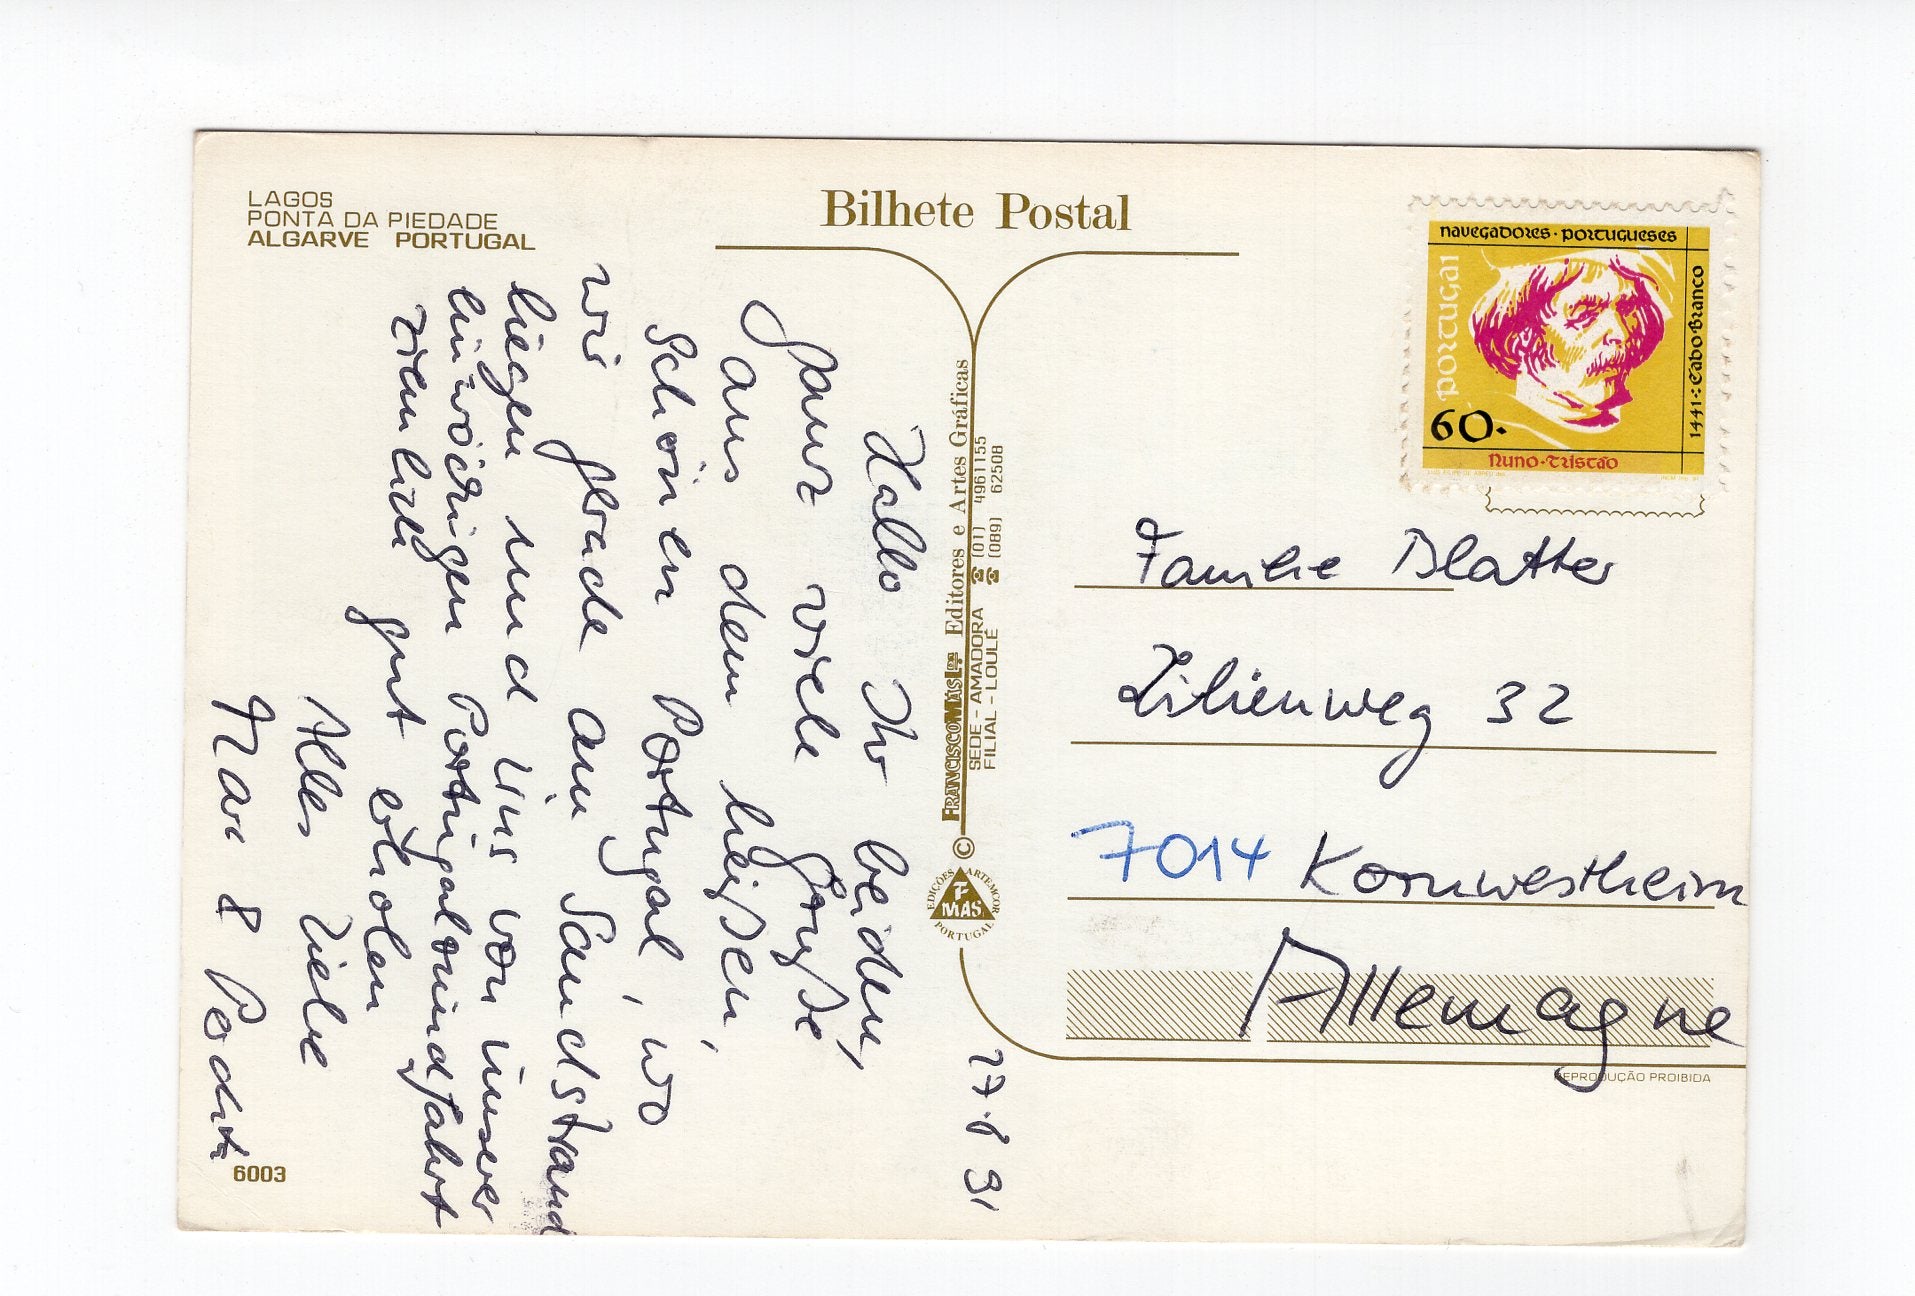 LAGOS
PONTA DA PIEDADE
ALGARVE PORTUGAL
Bilhete Postal
27.8 91
Hallo Ihr beiden,
ganz viele Grüße
aus dem heißen,
schönen Portugal, wo
wir gerade am Sandstrand
liegen und uns von unserer
einwöchigen Portugalrundfahrt
ziemlich gut erholen
Alles Liebe
6003
FRANCISCO MÁS Lda Editores e Artes Gráficas
SEDE - AMADORA ☎ (01) 4961155
FILIAL - LOULÉ ☎ (089) 62508
©
EDIÇÕES ARTEMCOR
F
MÁS
PORTUGAL
navegadores · portugueses
portugal
1441: Cabo Branco
60.
Nuno · Tristão
Familie Blatter
Lilienweg 32
7014 Kornwestheim
Allemagne
REPRODUÇÃO PROIBIDA